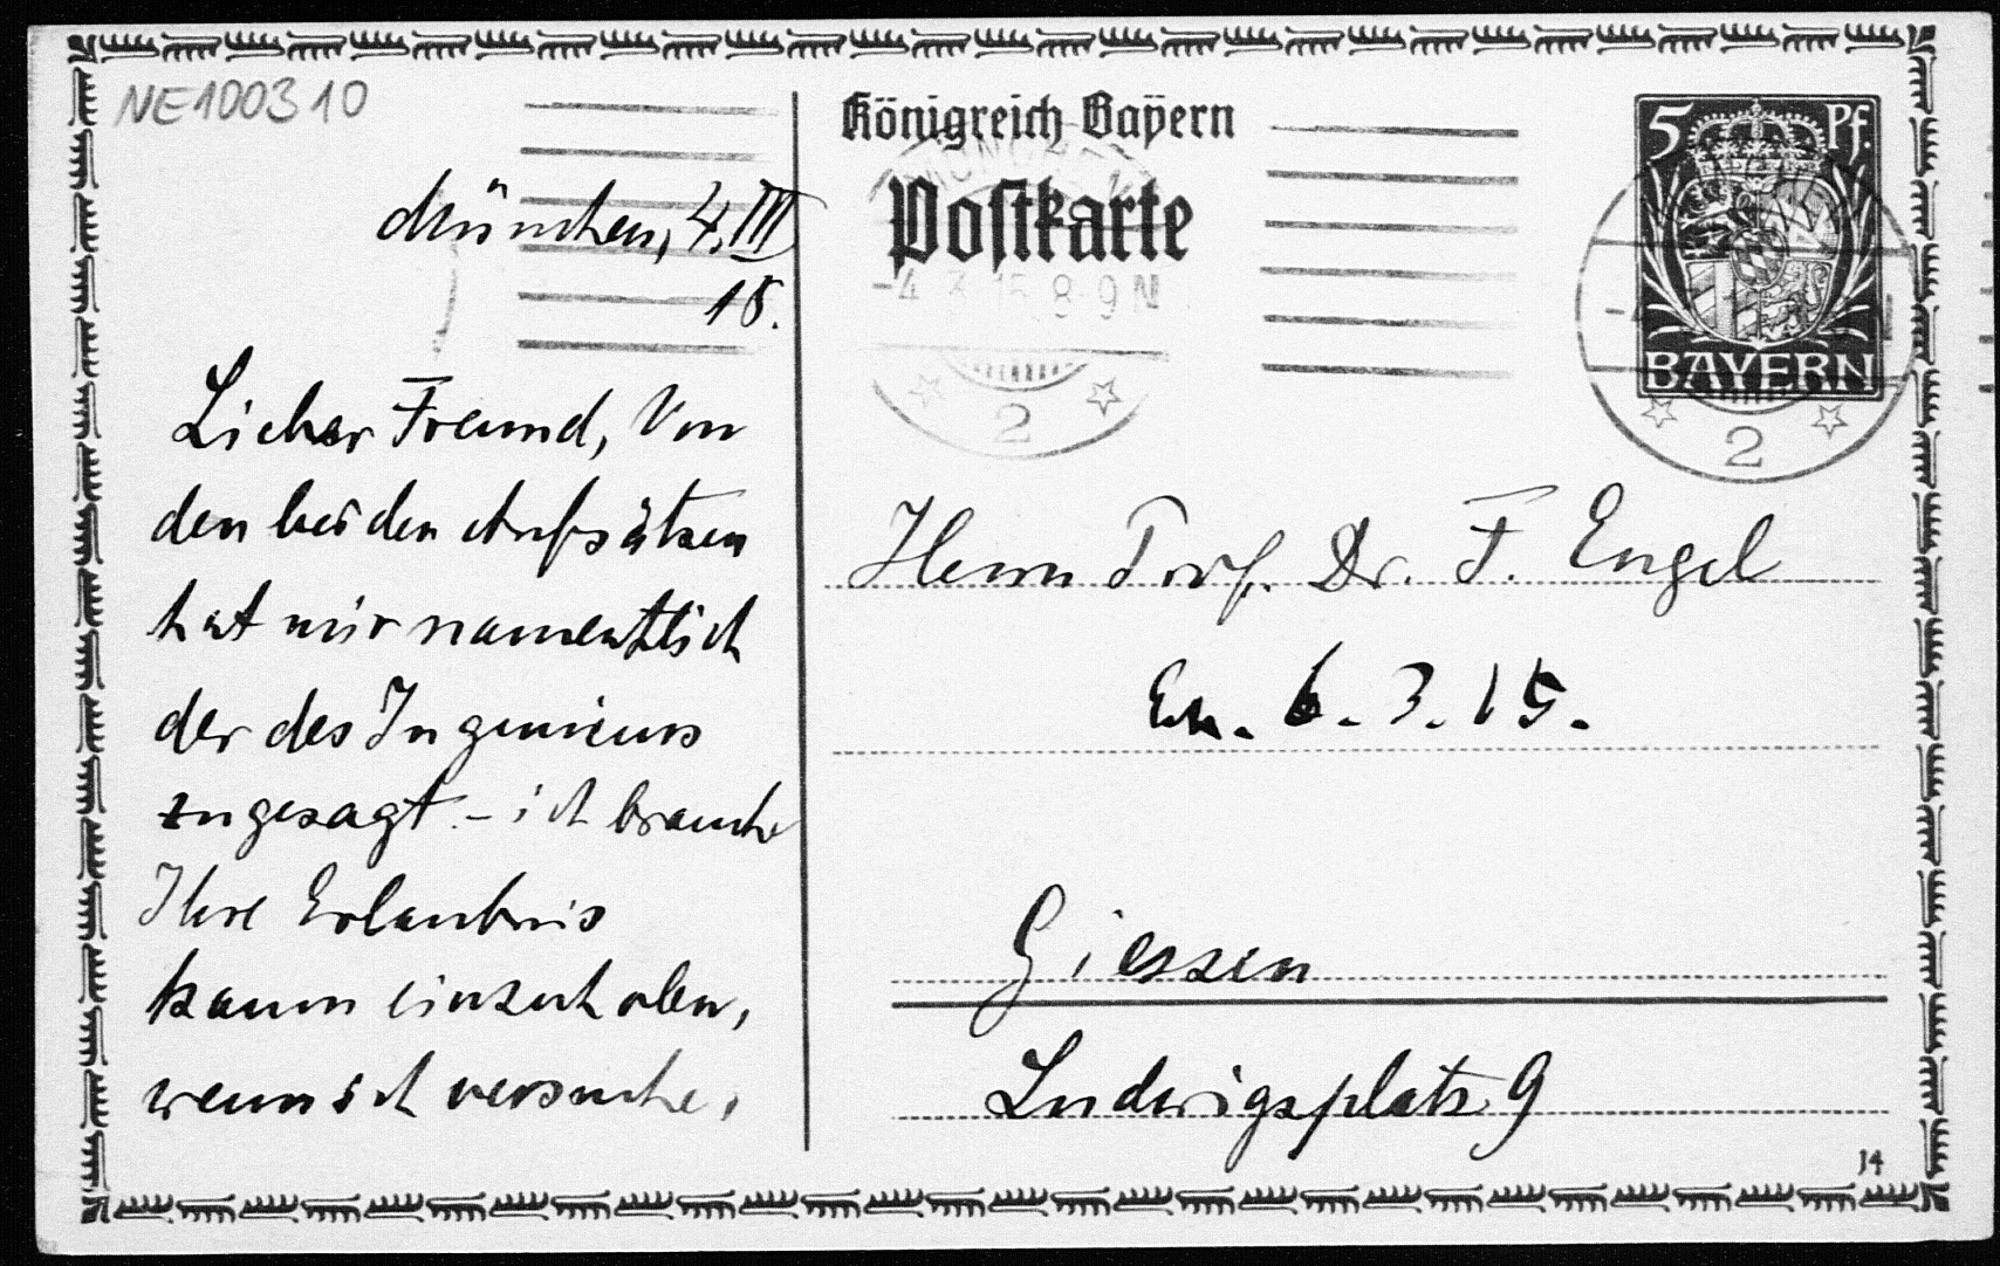 NE100310
München, 4. III
15.
Lieber Freund, Von
den beiden Aufsätzen
hat mir namentlich
der des Ingenieurs
zugesagt. – ich brauche
Ihre Erlaubnis
kaum einzuholen,
wenn ich versuche,
Königreich Bayern
Postkarte
MÜNCHEN
-4.3.15. 8-9 N
2
5 Pf.
BAYERN
2
Herrn Prof. Dr. F. Engel
En. 6. 3. 15.
Giessen
Ludwigsplatz 9
14